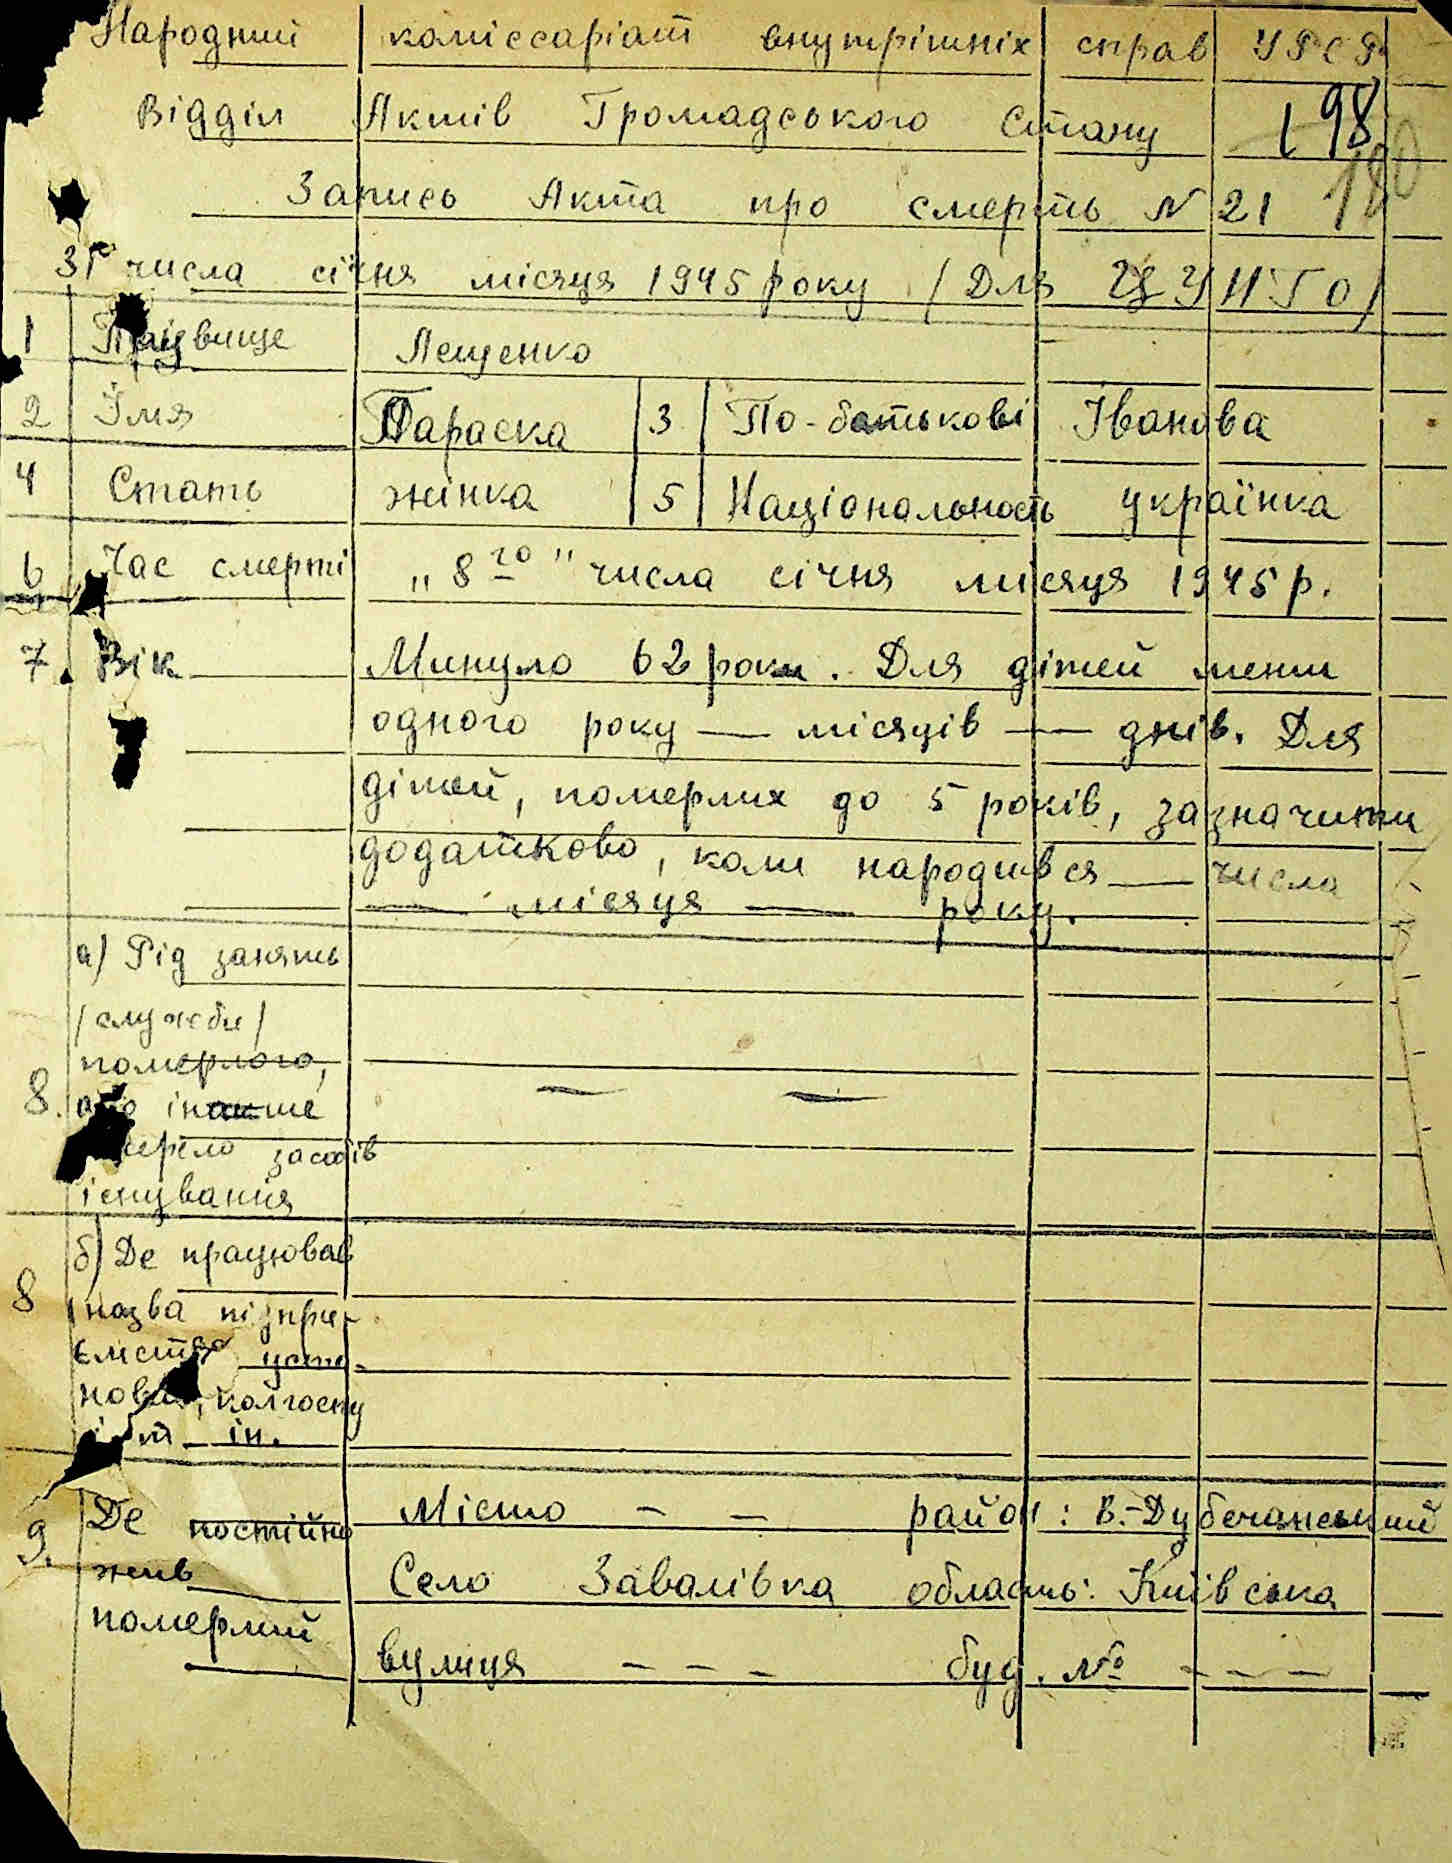 Народний коміссаріат внутрішніх справ УРСР
Відділ Актів Громадського Стану 198
180
Запись Акта про смерть N 21
31 числа січня місяця 1945 року / Для ЦУНГО /
1 Прізвище Лещенко
2 Імя Параска 3 По-батькові Іванова
4 Стать жінка 5 Національность українка
6 Час смерті „8го" числа січня місяця 1945 р.
7. Вік Минуло 62 роки. Для дітей менш
одного року — місяців — днів. Для
дітей, померлих до 5 років, зазначити
додатково, коли народився — числа
— місяця — року.
а) Рід занять
/служби/
померлого,
8. або інакше — —
джерело засобів
існування
б) Де працював
8 назва підпри-
ємства уста-
нови, колгоспу
і т. ін.
9. Де постійно Місто - - район: В.-Дубечанський
жив Село Завалівка область: Київська
померлий
вулиця - - - буд. № - - -